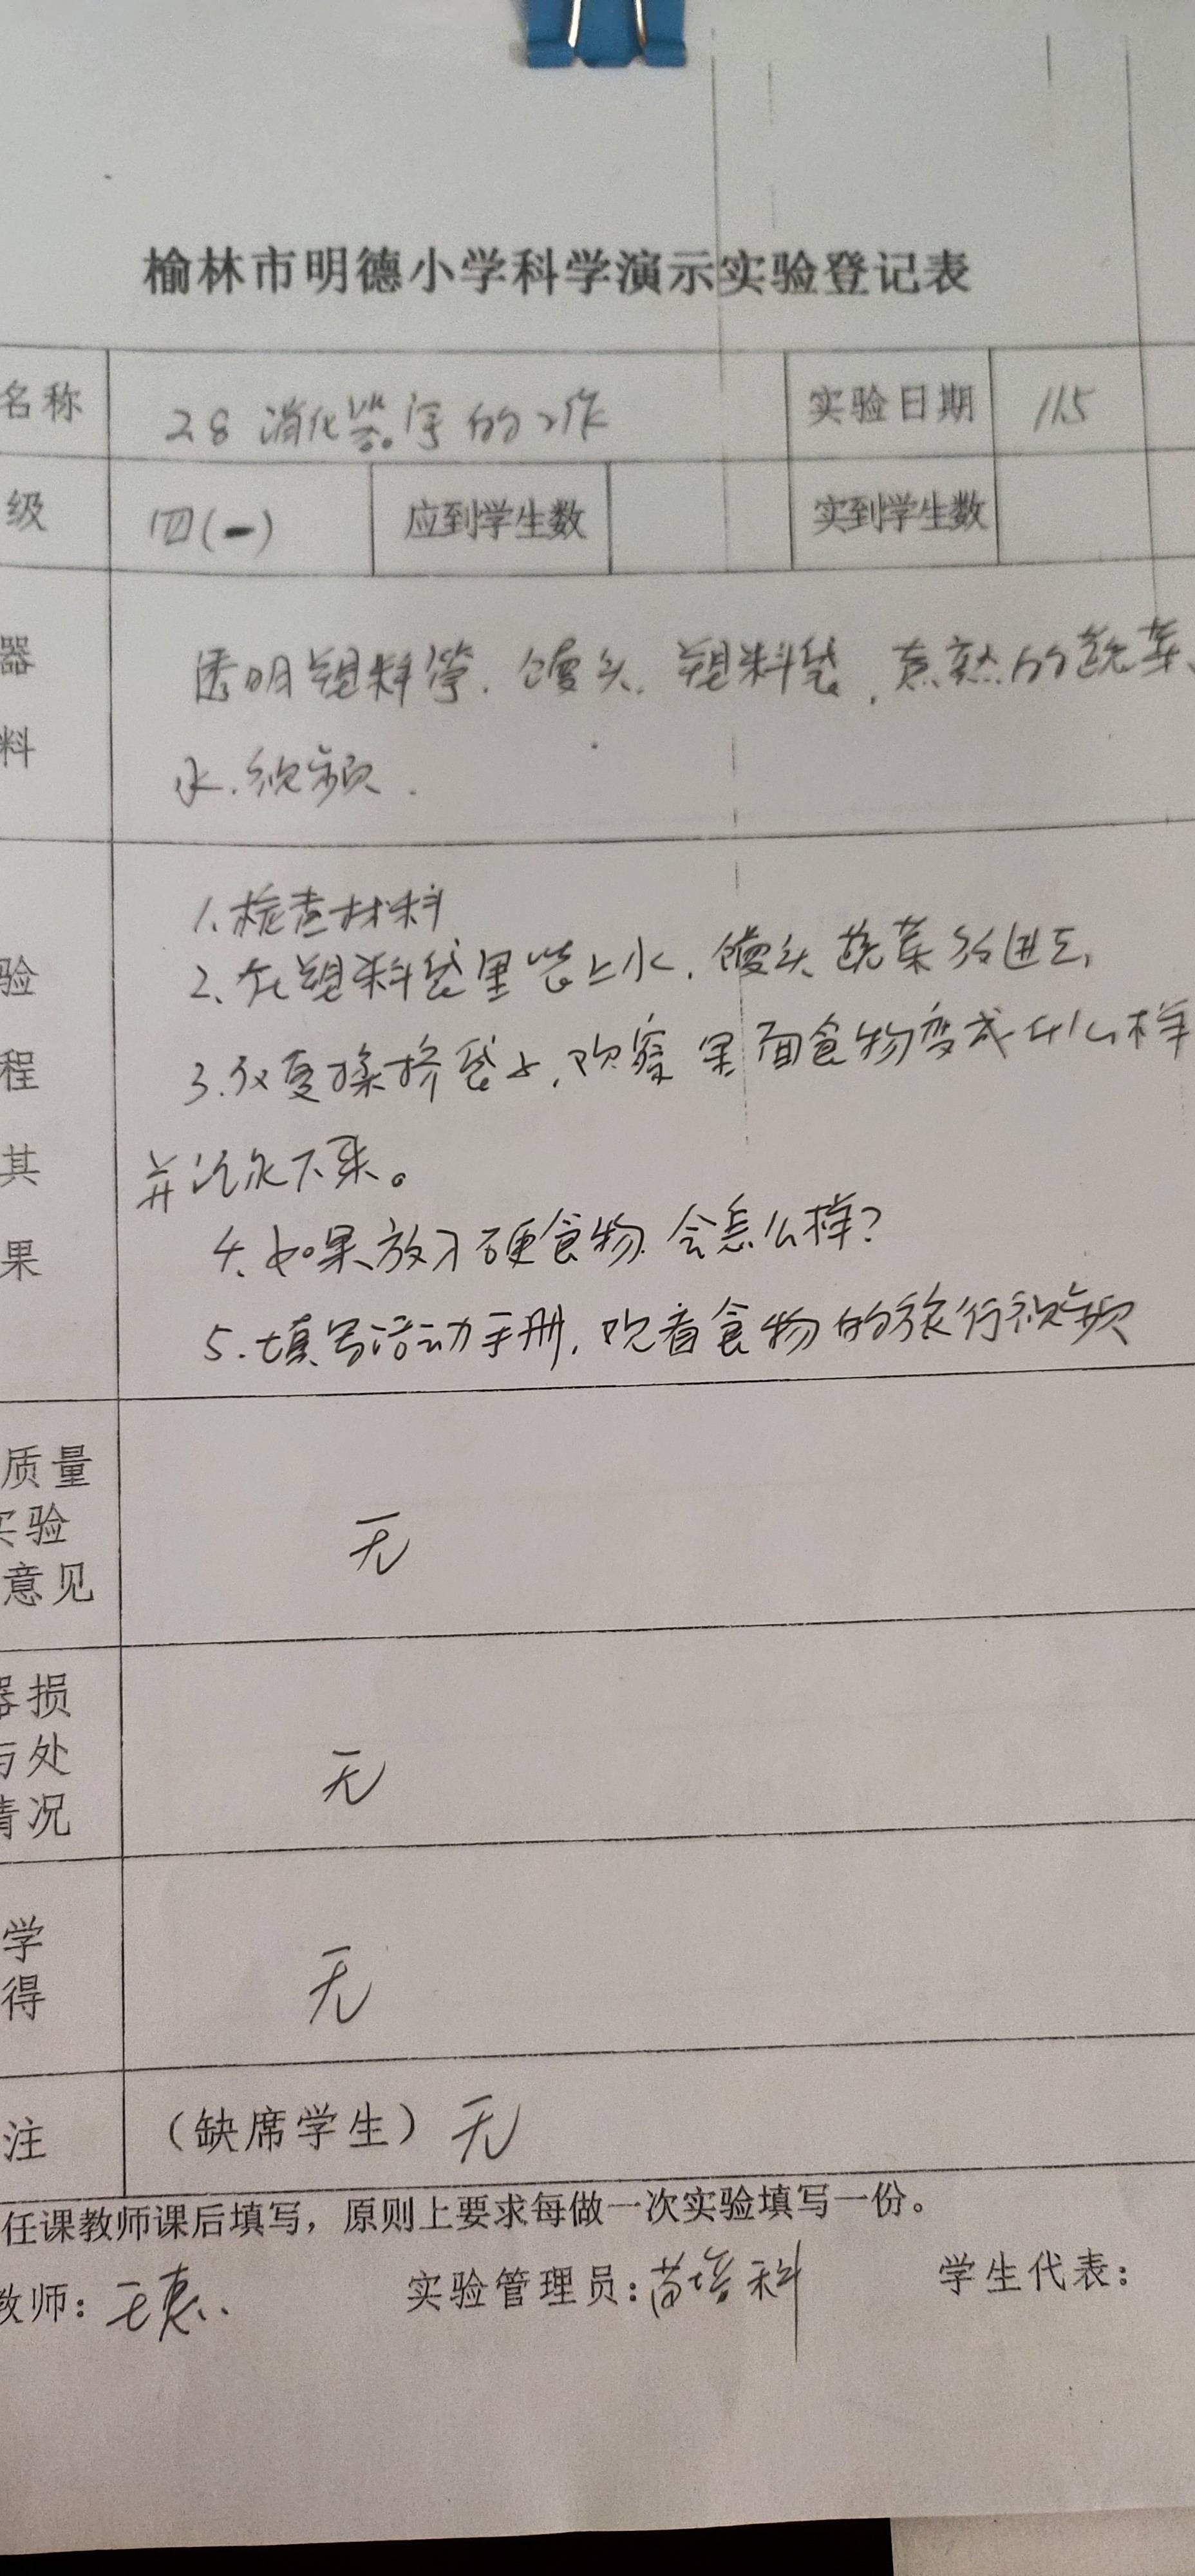 榆林市明德小学科学演示实验登记表
名称 2.8 消化器官的工作 实验日期 11.5
级 四(一) 应到学生数 实到学生数
器 透明塑料 馒头. 塑料袋, 煮熟的蔬菜、
料 水. 视频.
1. 检查材料
验 2. 在塑料袋里装上水, 馒头 蔬菜 进去,
程 3. 反复揉挤袋子, 观察 里面食物变成什么样
其 并记录下来。
果 4. 如果放入硬食物. 会怎么样?
5. 填写活动手册, 观看食物的旅行视频
质量
实验 无
意见
器损
与处 无
情况
学
得 无
注 (缺席学生) 无
任课教师课后填写，原则上要求每做一次实验填写一份。
教师: 实验管理员: 苗培科 学生代表: